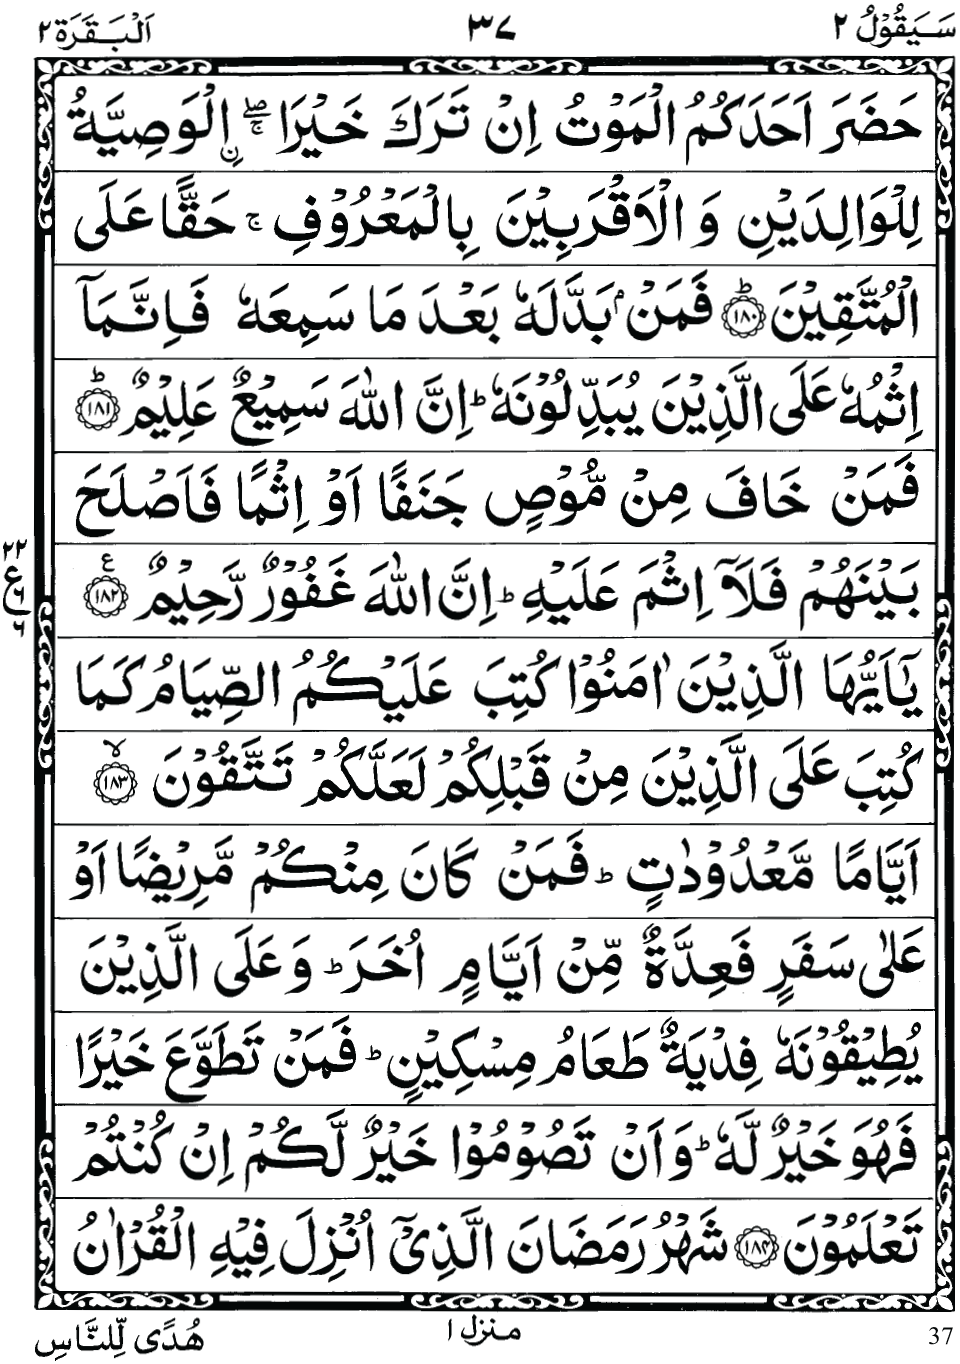 سَيَقُوْلُ ٢ ٣٧ اَلْبَقَرَة ٢
حَضَرَ اَحَدَكُمُ الْمَوْتُ اِنْ تَرَكَ خَيْرَا ۖۚ اۨلْوَصِيَّةُ
لِلْوَالِدَيْنِ وَ الْاَقْرَبِيْنَ بِالْمَعْرُوْفِ ۚ حَقًّا عَلَى
الْمُتَّقِيْنَ ؕ‏﴿١٨٠﴾ فَمَنْۢ بَدَّلَهٗ بَعْدَ مَا سَمِعَهٗ فَاِنَّمَاۤ
اِثْمُهٗ عَلَى الَّذِيْنَ يُبَدِّلُوْنَهٗ ؕ اِنَّ اللّٰهَ سَمِيْعٌ عَلِيْمٌ ؕ‏﴿١٨١﴾
فَمَنْ خَافَ مِنْ مُّوْصٍ جَنَفًا اَوْ اِثْمًا فَاَصْلَحَ
بَيْنَهُمْ فَلَاۤ اِثْمَ عَلَيْهِ ؕ اِنَّ اللّٰهَ غَفُوْرٌ رَّحِيْمٌ ع ﴿١٨٢﴾
٢٢
ع
٦
٦
يٰۤاَيُّهَا الَّذِيْنَ اٰمَنُوْا كُتِبَ عَلَيْکُمُ الصِّيَامُ كَمَا
كُتِبَ عَلَى الَّذِيْنَ مِنْ قَبْلِکُمْ لَعَلَّكُمْ تَتَّقُوْنَ ۙ‏﴿١٨٣﴾
اَيَّامًا مَّعْدُوْدٰتٍ ؕ فَمَنْ كَانَ مِنْكُمْ مَّرِيْضًا اَوْ
عَلٰى سَفَرٍ فَعِدَّةٌ مِّنْ اَيَّامٍ اُخَرَ ؕ وَعَلَى الَّذِيْنَ
يُطِيْقُوْنَهٗ فِدْيَةٌ طَعَامُ مِسْكِيْنٍ ؕ فَمَنْ تَطَوَّعَ خَيْرًا
فَهُوَ خَيْرٌ لَّهٗ ؕ وَاَنْ تَصُوْمُوْا خَيْرٌ لَّکُمْ اِنْ كُنْتُمْ
تَعْلَمُوْنَ ﴿١٨٤﴾ شَهْرُ رَمَضَانَ الَّذِىْٓ اُنْزِلَ فِيْهِ الْقُرْاٰنُ
هُدًى لِّلنَّاسِ منزل ١ 37